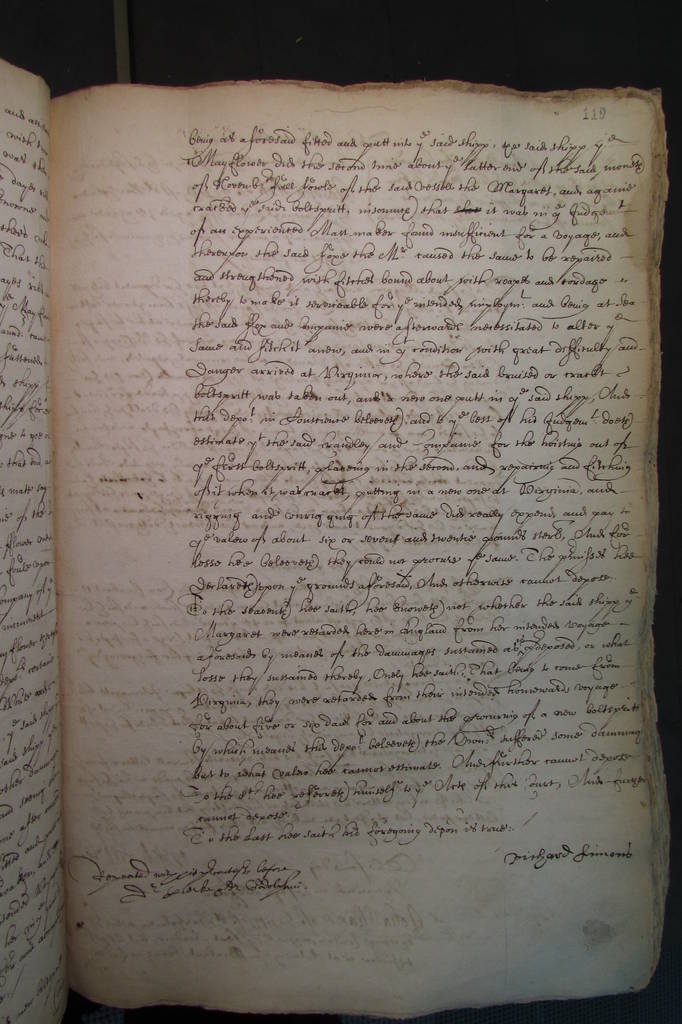 119
being as aforesaid fitted and putt into ye said shipp, the said shipp ye
Mayflower did the second time about ye latter end of the said moneth
of Novembr fall fowle of the said vessell the Margaret, and againe
cracked ye said boltspritt, insomuch that it was in ye Judgemt
of an experienced Mast maker found insufficient for a voyage, and
thereupon the said the Mr caused the same to be repaired
and strengthened with fitches bound about with roapes and cordage
thereby to make it serviceable for ye intended imploymt. and being at sea
the said and Companie were afterwards necessitated to alter ye
same and fitch it anew, and in yt condition with great difficulty and
danger arrived at Virginia, where the said bruised or crackt
boltspritt was taken out, and a new one putt in ye said shipp, And
this depot. in Conscience beleeveth, and to ye best of his Judgemt. doeth
estimate yt the said and Companie for the hoising out of
ye first boltspritt, placeing in the second, and repairing and fitching
of it when it was crackt, putting in a new one at Virginia, and
rigging and unrigging of the same did really expend and pay to
ye valew of about six or seven and twentie pounds sterl, And for
losse hee beleeveth they could not procure ye same. The premisses hee
declareth upon ye grounds aforesaid, And otherwise cannot depose.
To the seaventh hee saith, hee knoweth not whether the said shipp ye
Margaret were retarded here in England from her intended voyage
aforesaid by meanes of the dammages sustained as predeposed, or what
losse they sustained thereby, Onely hee saith, That being to come from
Virginia, they were retarded from their intended homewards voyage
for about five or six daies for and about the procuring of a new boltspritt
by which meanes this depot. beleeveth the suffered some dammage
but to what valew hee cannot estimate. And further cannot depose
To the 8th. hee referreth himselfe to ye Acts of this Court, And further
cannot depose
To the last hee saith his foregoing depon is true:
Richard Simons
Repeated before
Dr. Clerke Godolphin.